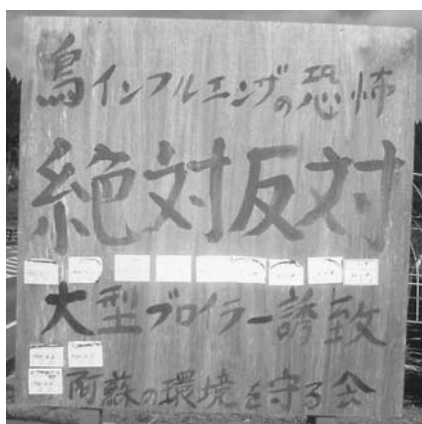 鳥インフルエンザの恐怖
絶対反対
大型ブロイラー誘致
阿蘇の環境を守る会